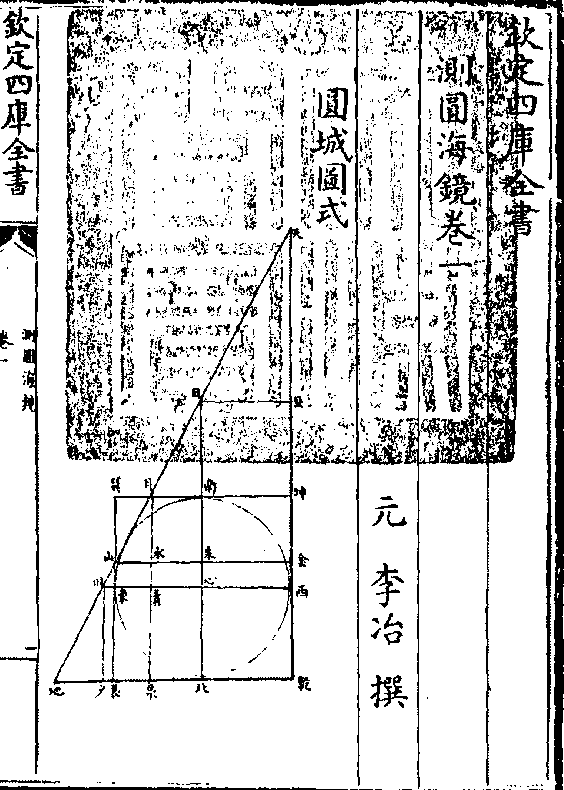 欽定四庫全書
測圓海鏡卷一
元 李冶 撰
圓城圖式
天
日
旦
巽
月
南
坤
山
朱
金
川
東
青
心
西
地
夕
艮
泉
北
乾
欽定四庫全書
測圓海鏡
卷一